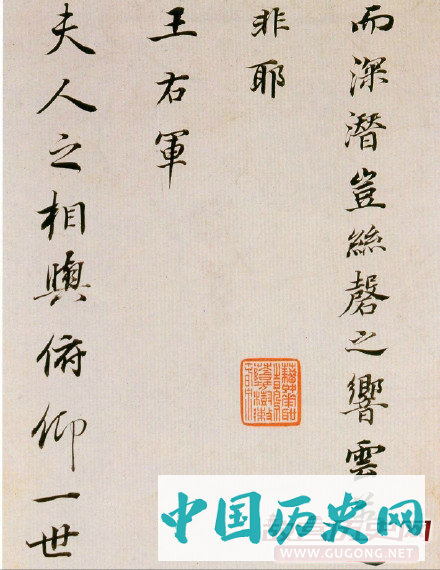 而深潛豈絲磬之響雲
非耶
王右軍
夫人之相與俯仰一世
中国历史网
WWW.GUGONG.NET